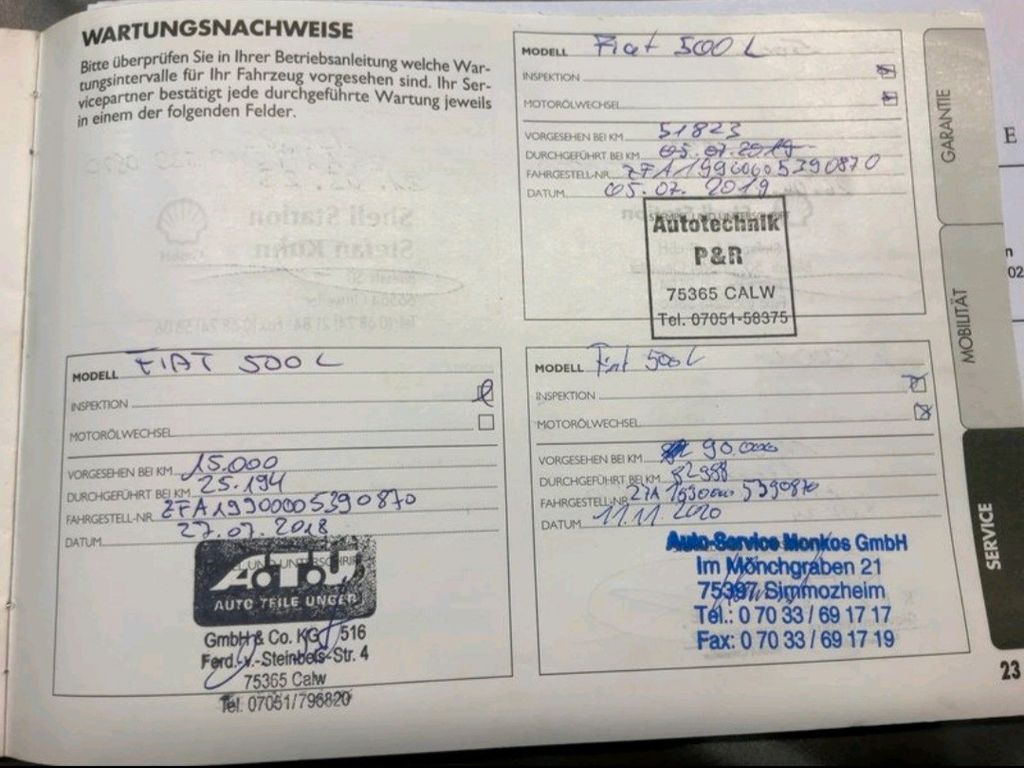 WARTUNGSNACHWEISE
Bitte überprüfen Sie in Ihrer Betriebsanleitung welche War-
tungsintervalle für Ihr Fahrzeug vorgesehen sind. Ihr Ser-
vicepartner bestätigt jede durchgeführte Wartung jeweils
in einem der folgenden Felder.
MODELL Fiat 500 L
INSPEKTION
MOTORÖLWECHSEL
VORGESEHEN BEI KM 51823
DURCHGEFÜHRT BEI KM 05.07.2019
FAHRGESTELL-NR. ZFA19900005390870
DATUM 05.07.2019
Autotechnik
P&R
75365 CALW
Tel. 07051-58375
MODELL FIAT 500 L
INSPEKTION
MOTORÖLWECHSEL
VORGESEHEN BEI KM 15.000
DURCHGEFÜHRT BEI KM 25.194
FAHRGESTELL-NR. ZFA19900005390870
DATUM 27.07.2018
AUTO TEILE UNGER
GmbH & Co. KG 516
Ferd.-v.-Steinbeis-Str. 4
75365 Calw
Tel. 07051/796820
MODELL Fiat 500 L
INSPEKTION
MOTORÖLWECHSEL
VORGESEHEN BEI KM 90.000
DURCHGEFÜHRT BEI KM 82988
FAHRGESTELL-NR. 5390870
DATUM 11.11.2020
Auto-Service Monkos GmbH
Im Mönchgraben 21
75397 Simmozheim
Tel.: 0 70 33 / 69 17 17
Fax: 0 70 33 / 69 17 19
GARANTIE
MOBILITÄT
SERVICE
23
E
02